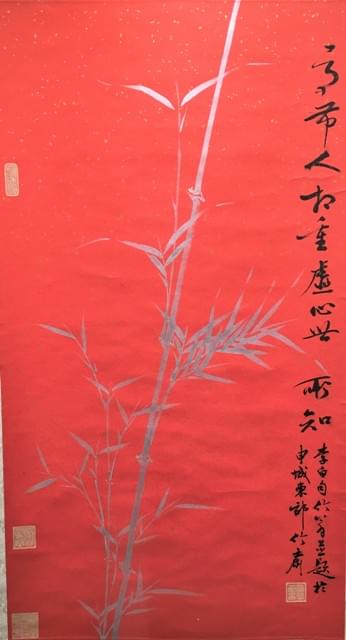 高节人相重虚心世所知
李白句 竹翁并题於
申城東郊竹齋